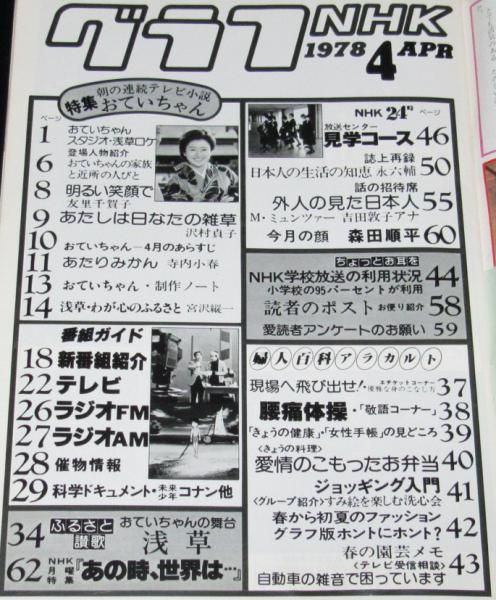 グラフNHK
1978 4 APR
朝の連続テレビ小説
特集 おていちゃん
ページ
1 おていちゃん
スタジオ・浅草ロケ
6 登場人物紹介
おていちゃんの家族
と近所の人びと
8 明るい笑顔で
友里千賀子
9 あたしは日なたの雑草
沢村貞子
10 おていちゃん—4月のあらすじ
11 あたりみかん 寺内小春
13 おていちゃん・制作ノート
14 浅草・わが心のふるさと 宮沢縦一
番組ガイド
18 新番組紹介
22 テレビ
26 ラジオFM
27 ラジオAM
28 催物情報
29 科学ドキュメント・未来少年コナン他
34 ふるさと讃歌 おていちゃんの舞台
浅草
62 NHK月曜特集『あの時、世界は…』
NHK 24時 ページ
放送センター
見学コース 46
誌上再録
日本人の生活の知恵 永六輔 50
話の招待席
外人の見た日本人 55
M・ミュンツァー 吉田敦子アナ
今月の顔 森田順平 60
ちょっとお耳を
NHK学校放送の利用状況 44
小学校の95パーセントが利用
読者のポスト お便り紹介 58
愛読者アンケートのお願い 59
婦人百科アラカルト
現場へ飛び出せ! エチケットコーナー 優雅な身のこなし方 37
腰痛体操・「敬語コーナー」 38
「きょうの健康」・「女性手帳」の見どころ 39
〈きょうの料理〉
愛情のこもったお弁当 40
ジョッギング入門 41
〈グループ紹介〉すみ絵を楽しむ洗心会
春から初夏のファッション 42
グラフ版ホントにホント?
春の園芸メモ 43
〈テレビ受信相談〉
自動車の雑音で困っています